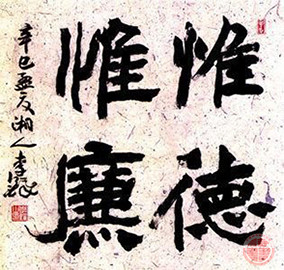 惟德
惟廉
辛巳夏月湘人李